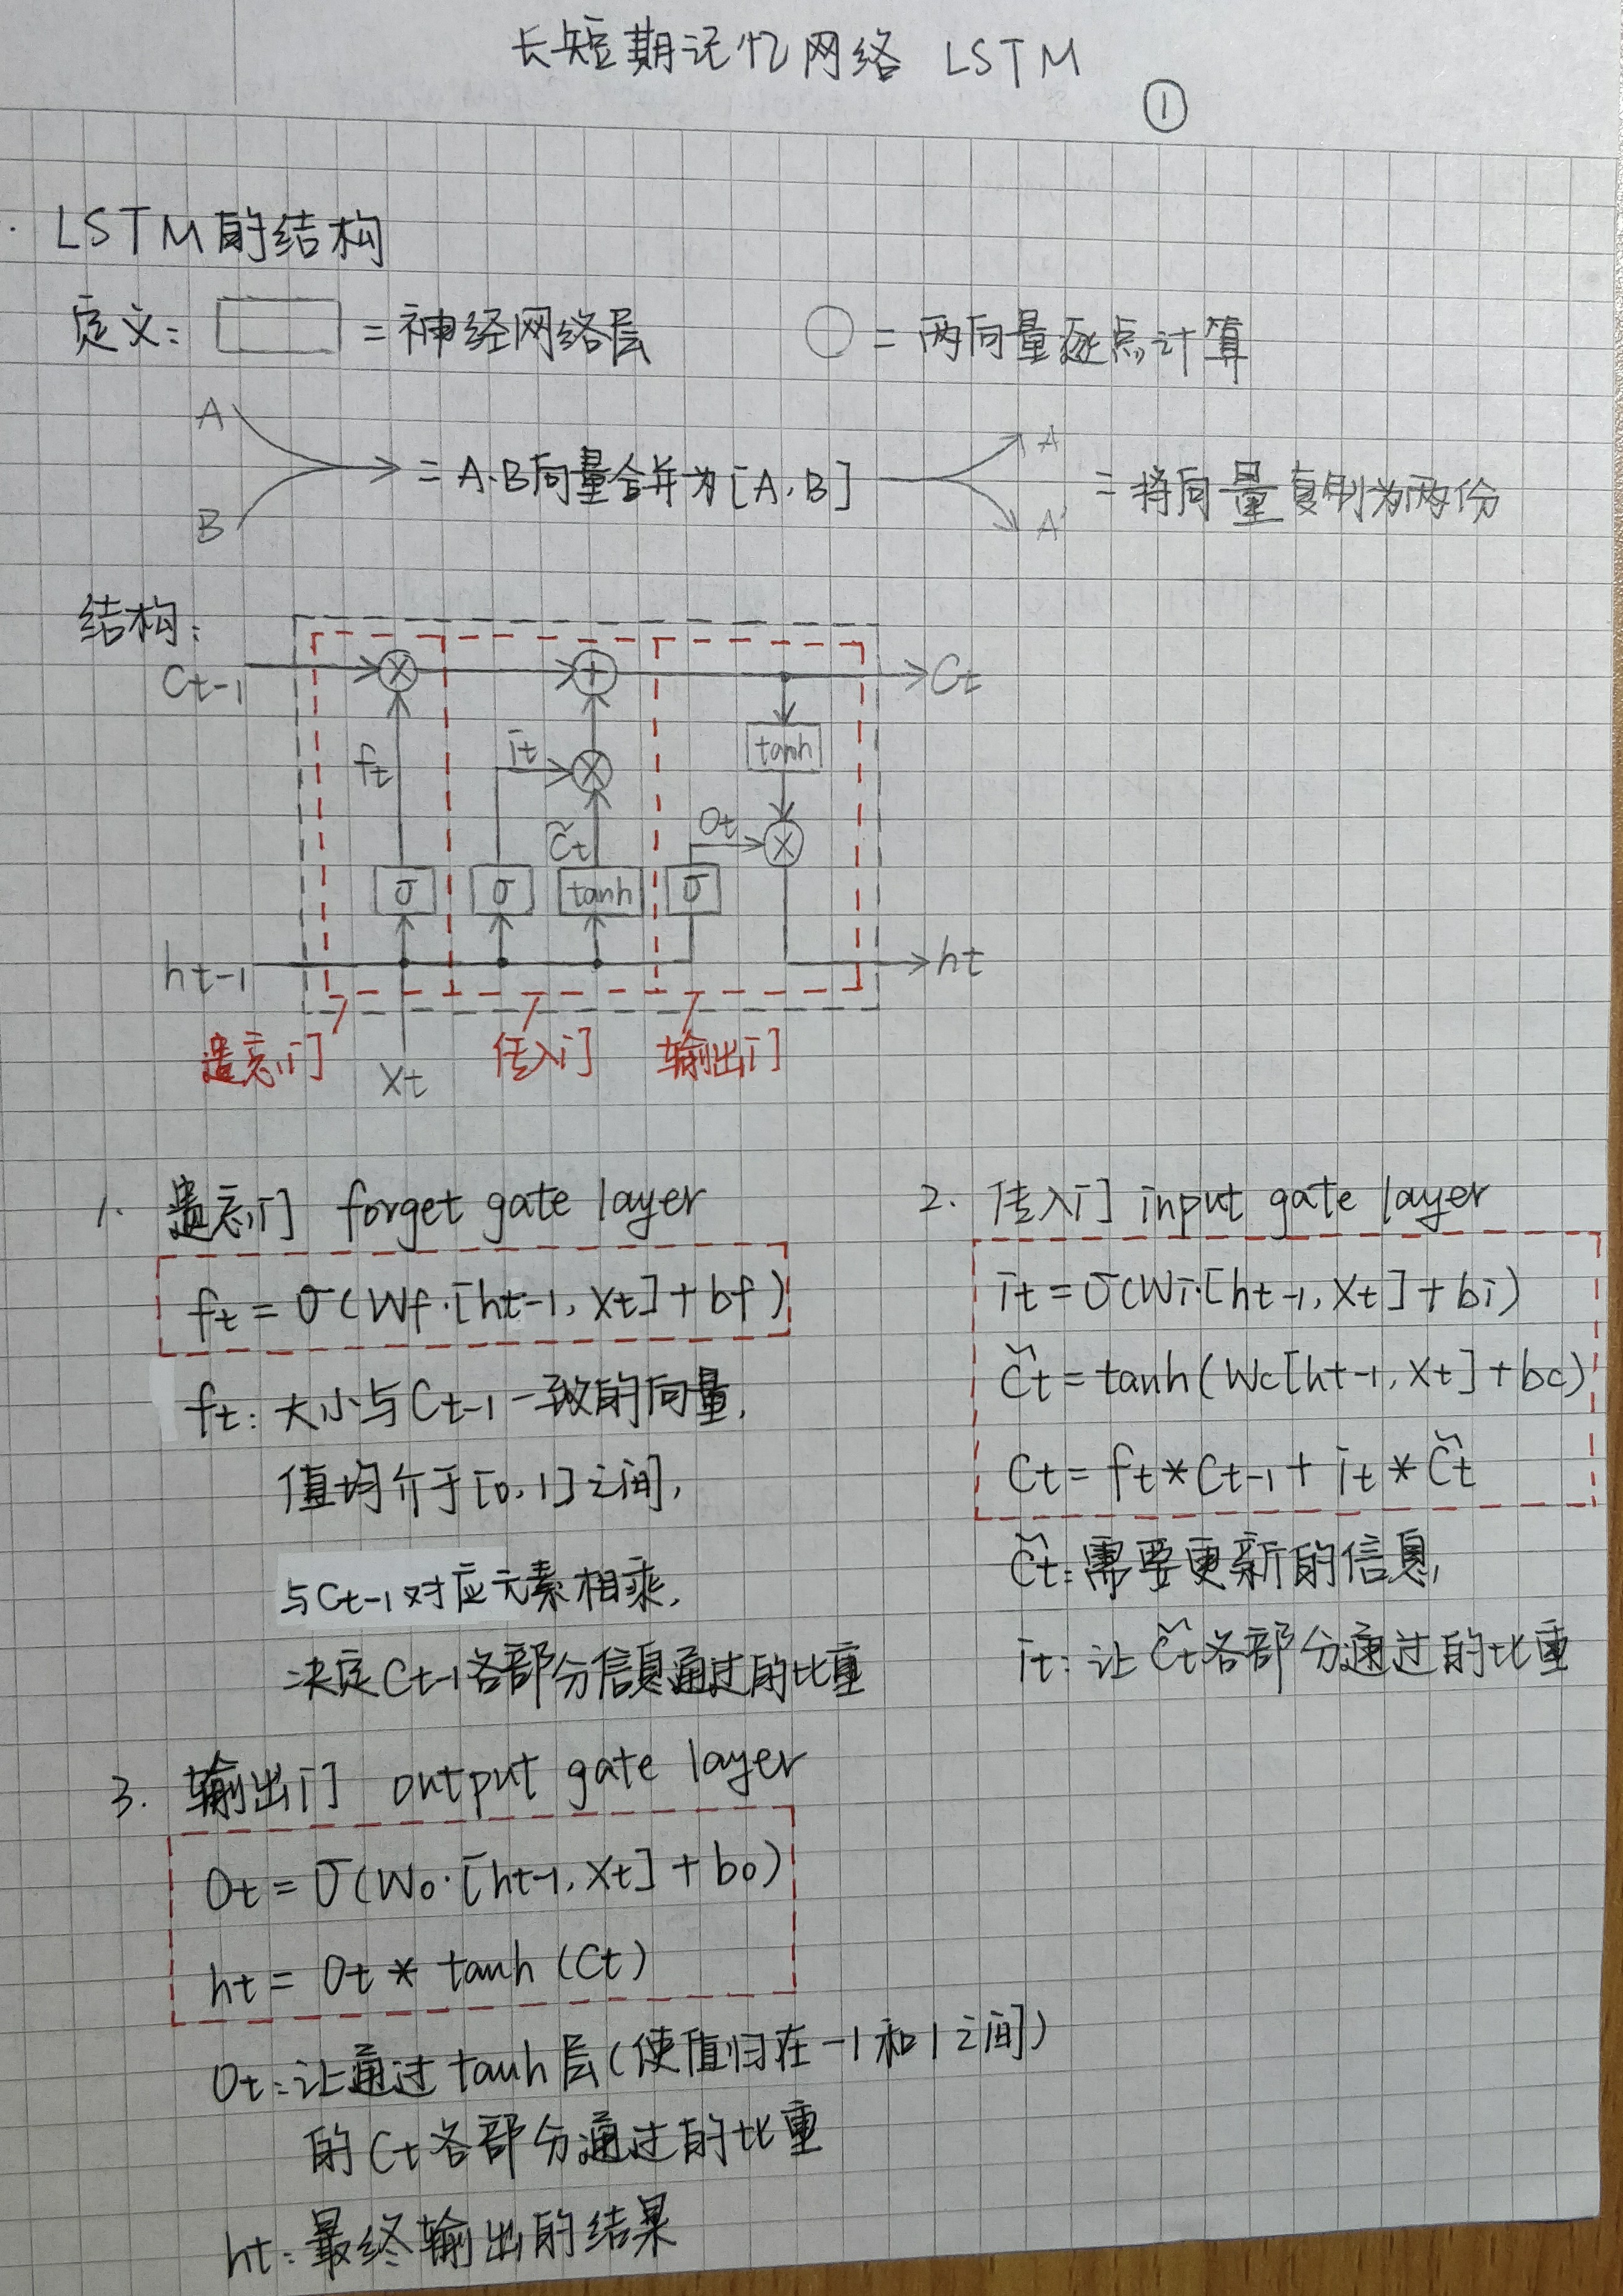 长短期记忆网络 LSTM
①
· LSTM的结构
定义: = 神经网络层
= 两向量逐点计算
A
B
= A.B向量合并为[A,B]
A
A'
= 将向量复制为两份
结构:
Ct-1
Ct
ft
it
C̃t
Ot
tanh
σ
σ
tanh
σ
ht-1
ht
遗忘门
Xt
传入门
输出门
1. 遗忘门 forget gate layer
ft = σ(Wf·[ht-1, Xt] + bf)
ft: 大小与Ct-1一致的向量,
值均介于[0,1]之间,
与Ct-1对应元素相乘,
决定Ct-1各部分信息通过的比重
2. 传入门 input gate layer
it = σ(Wi·[ht-1, Xt] + bi)
C̃t = tanh(Wc[ht-1, Xt] + bc)
Ct = ft * Ct-1 + it * C̃t
C̃t: 需要更新的信息,
it: 让C̃t各部分通过的比重
3. 输出门 output gate layer
Ot = σ(Wo·[ht-1, Xt] + bo)
ht = Ot * tanh (Ct)
Ot: 让通过tanh层(使值归在-1和1之间)
的Ct各部分通过的比重
ht: 最终输出的结果